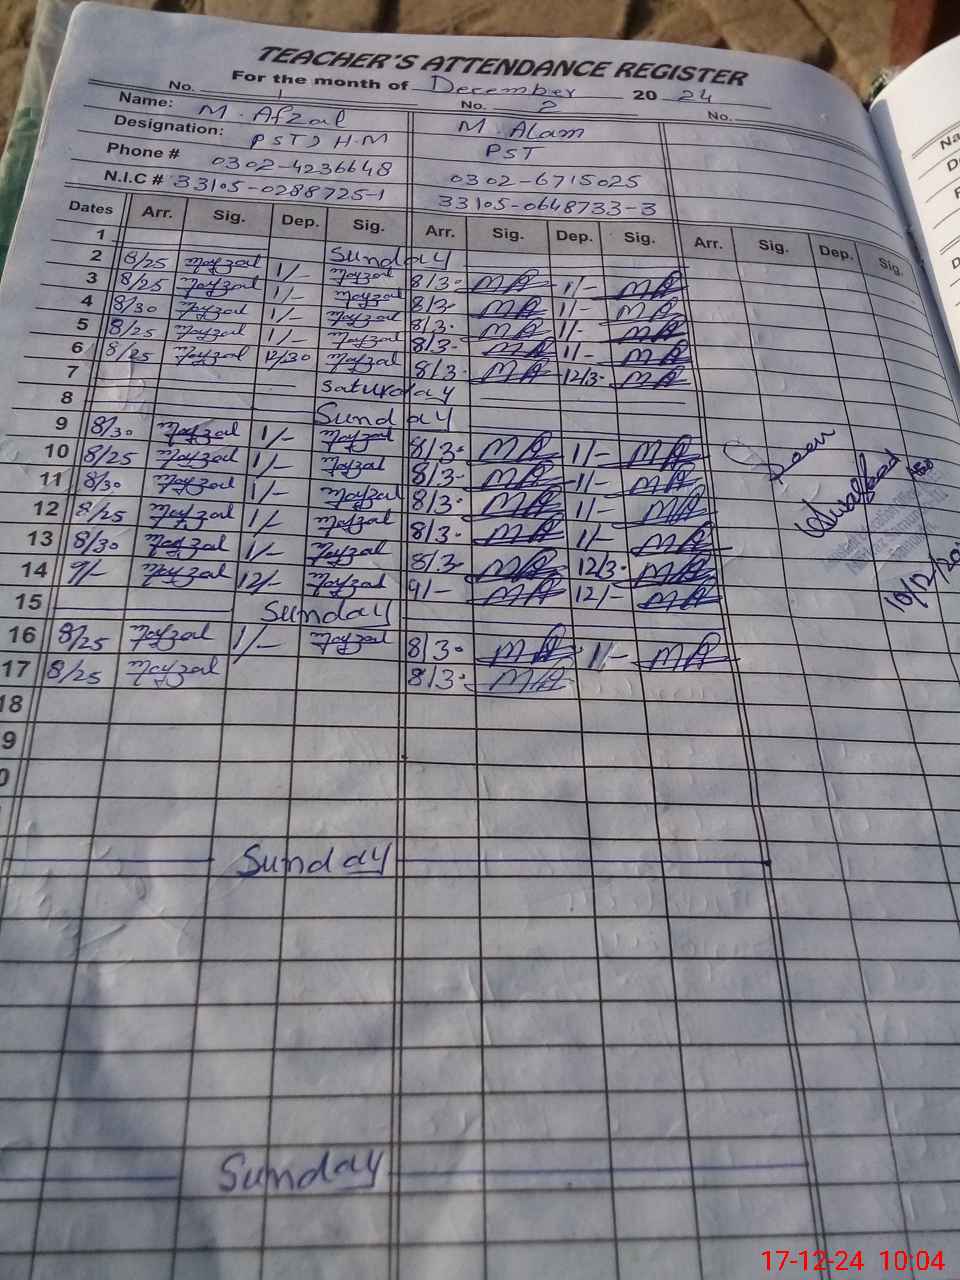 TEACHER'S ATTENDANCE REGISTER
For the month of December 2024
No. 1 No. 2 No.
Name: M. Afzal M. Alam
Designation: PST, H.M PST
Phone # 0302-4236648 0302-6715025
N.I.C # 33105-0288725-1 33105-0648733-3
Dates Arr. Sig. Dep. Sig. Arr. Sig. Dep. Sig. Arr. Sig. Dep. Sig.
1 Sunday
2 8/25 Mafzal 1/- Mafzal 8/3. MA 1/- MA
3 8/25 Mafzal 1/- Mafzal 8/3. MA 1/- MA
4 8/30 Mafzal 1/- Mafzal 8/3. MA 1/- MA
5 8/25 Mafzal 1/- Mafzal 8/3. MA 1/- MA
6 8/25 Mafzal 12/30 Mafzal 8/3. MA 12/3. MA
7 Saturday
8 Sunday
9 8/30 Mafzal 1/- Mafzal 8/3. MA 1/- MA
10 8/25 Mafzal 1/- Mafzal 8/3. MA 1/- MA
11 8/30 Mafzal 1/- Mafzal 8/3. MA 1/- MA
12 8/25 Mafzal 1/- Mafzal 8/3. MA 1/- MA
13 8/30 Mafzal 1/- Mafzal 8/3. MA 12/3. MA
14 9/- Mafzal 12/- Mafzal 9/- MA 12/- MA
15 Sunday
16 8/25 Mafzal 1/- Mafzal 8/3. MA 1/- MA
17 8/25 Mafzal 8/3. MA
18
9
0
Sunday
Sunday
Seen
AEO
10/12/20
Na
D
P
N
D
17-12-24 10:04